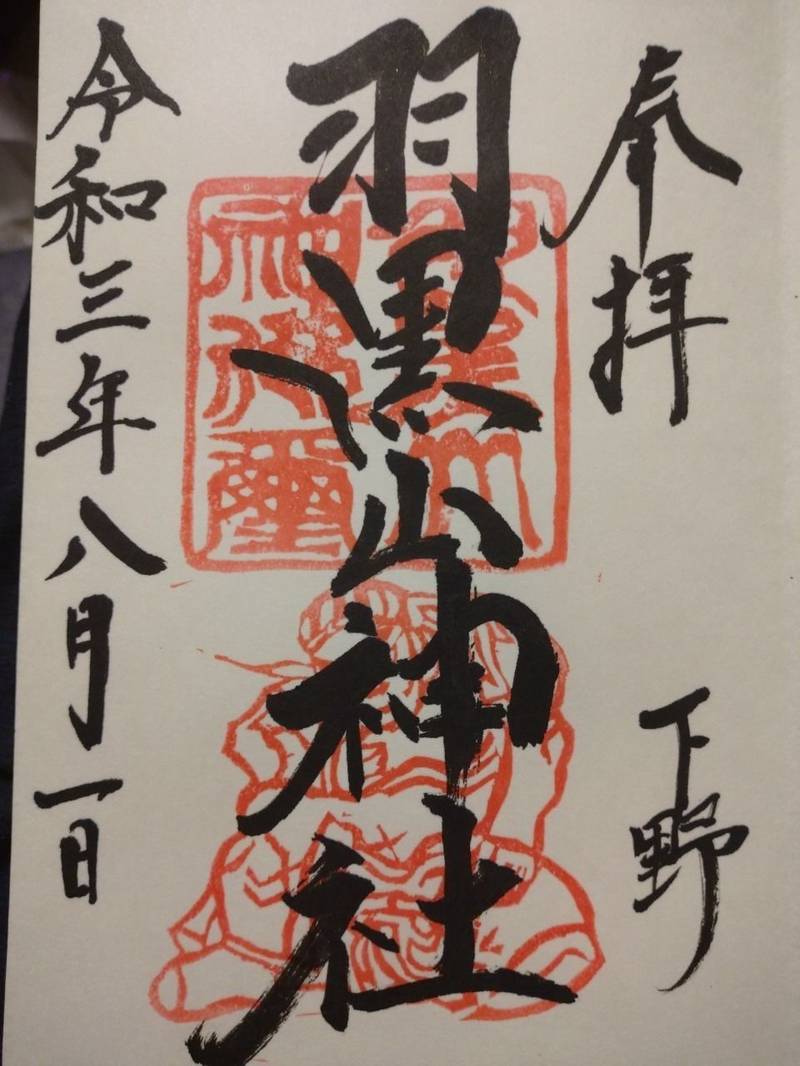 奉拝
下野
羽黒山神社
令和三年八月一日